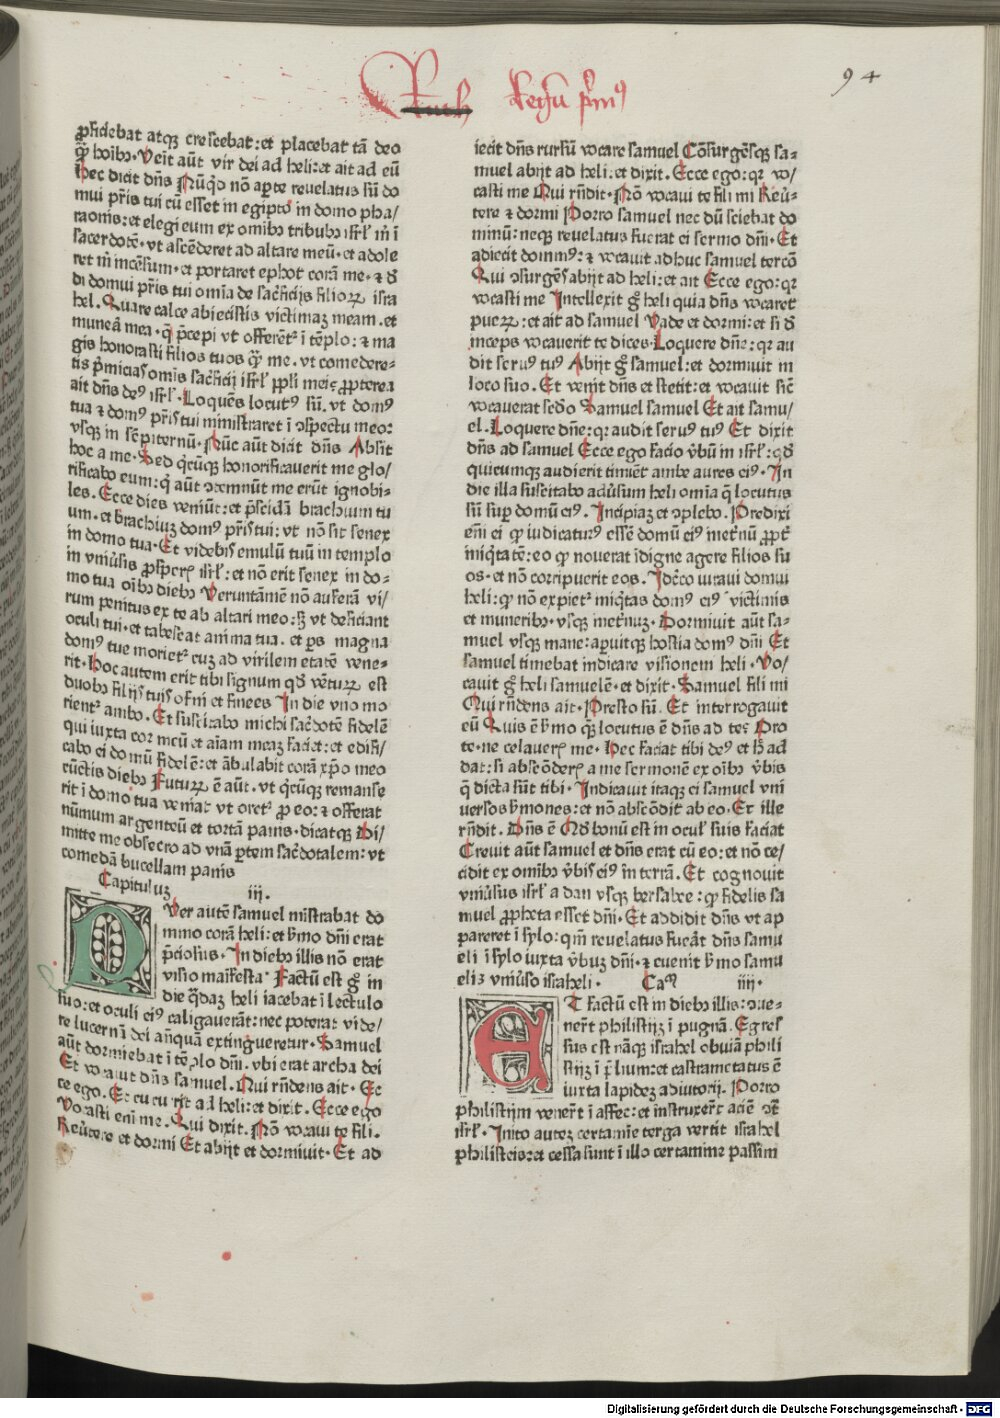 Ruth Regū prīmꝰ
94
ꝓficiebat atqꝫ crescebat: et placebat tā deo
ꝙ̄ hoībꝰ. Ueīt aūt vir dei ad heli: et ait ad eū
Hec dicit dn̄s Nūqd̄ nō aꝑte reuelatus sū do
mui pr̄is tui cū esset in egipto in domo pha/
raonis: et elegi eum ex omībꝰ tribubꝰ isrl̄ m̄ ī
sacerdotē. vt ascēderet ad altare meū. et adole
ret m̄ incēsum. et portaret ephot corā me. ⁊ d
di domui pr̄is tui omīa de sac̄ficijs filioꝝ isra
hel. Quare calce abiecistis victimaꝫ meam. et
munera mea. q̄ p̄cepi vt offerētᷣ ī tēplo: ⁊ ma
gis honorasti filios tuos ꝙ̄ me. vt comedere-
tis p̄miciaſ omīs sac̄ficij isrl̄ ppl̄i mei: ꝓpterea
ait dn̄s deꝰ isrl̄. Loquēs locutꝰ sū. vt domꝰ
tua ⁊ domꝰ pr̄is tui ministraret ī ꝯspectu meo:
vsqꝫ in sēpiternū. Nūc aūt dicit dn̄s Absit
hoc a me. Sed q̄cūqꝫ honorificauerit me glo/
rificabo eum: q̄ aūt ꝯtemnūt me erūt ignobi-
les. Ecce dies veniūt: et p̄scidā brachium tu
um. et brachiuꝫ domꝰ pr̄is tui: vt nō sit senex
in domo tua. Et videbis emulū tuū in templo
in vniūsis ꝓsꝑeꝝ isrl̄: et nō erit senex in do-
mo tua oībꝰ diebꝰ Ueruntamē nō auferā vi/
rum penitus ex te ab altari meo: sꝫ vt deficiant
oculi tui. et tabescat anima tua. et ꝑs magna
domꝰ tue morietᷣ cuꝫ ad virilem etatē vene-
rit. Hoc autem erit tibi signum qd̄ vētuꝝ est
duobꝰ filijs tuis ofni et finees In die vno mo
rientᷣ ambo. Et suscitabo michi sac̄dotē fidelē
qui iuxta cor meū et aīam meaꝫ faciet: et edifi/
cabo ei domū fidelē: et ābulabit corā xp̄o meo
cūctis diebꝰ Futuꝝ ē aūt. vt q̄cūqꝫ remanse
rit ī domo tua veniat vt oretᷣ ꝓ eo: ⁊ offerat
nūmum argenteū et tortā panis. dicatqꝫ Di/
mitte me obsecro ad vnā ꝑtem sac̄dotalem: vt
comedā bucellam panis
Capituluꝫ iii.
PUer autē samuel mīstrabat do
mino corā heli: et ẜmo dn̄i erat
p̄ciosus. In diebꝰ illis nō erat
visio maīfesta Factū est gͦ in
die q̄daꝫ heli iacebat ī lectulo
suo: et oculi eiꝰ caligauerāt: nec poterat vide/
re lucernā dei anquā extingueretur. Samuel
aūt dormiebat ī tēplo dn̄i. vbi erat archa dei
Et vocauit dn̄s samuel. Qui rn̄dens ait. Ec
ce ego. Et cucurrit ad heli: et dixit. Ecce ego
Uocasti enī me. Qui dixit. Nō vocaui te fili.
Reūtere et dormi Et abijt et dormiuit. Et ad
iecit dn̄s rursū vocare samuel Cōsurgēsqꝫ sa-
muel abijt ad heli: et dixit. Ecce ego: qꝛ vo/
casti me Qui rn̄dit. Nō vocaui te fili mi Reū-
tere ⁊ dormi Porro samuel nec dū sciebat do
minū: neqꝫ reuelatus fuerat ei sermo dn̄i. Et
adiecit dominꝰ: ⁊ vocauit adhuc samuel tercō
Qui ꝯsurgēs abijt ad heli: et ait Ecce ego: qꝛ
vocasti me Intellexit gͦ heli quia dn̄s vocaret
pueꝝ: et ait ad samuel Uade et dormi: et si d
inceps vocauerit te dices. Loquere dn̄e: qꝛ au
dit seruꝰ tuꝰ Abijt gͦ samuel: et dormiuit in
loco suo. Et venit dn̄s et stetit: et vocauit sic̄
vocauerat scd̄o Samuel samuel Et ait samu/
el. Loquere dn̄e: qꝛ audit seruꝰ tuꝰ Et dixit
dn̄s ad samuel Ecce ego facio v̄bū in isrl̄: qd̄
quicumqꝫ audierit tinniēt ambe aures eiꝰ. In
die illa suscitabo adūsum heli omīa q̄ locutus
sū suꝑ domū eiꝰ. Incipiaꝫ et ꝯplebo. Predixi
enī ei ꝙ iudicaturꝰ essē domū eiꝰ inet̄nū ꝓpt̄
iniq̄tatē: eo ꝙ nouerat īdigne agere filios su
os. et nō corripuerit eos. Idcͦco iuraui domui
heli: ꝙ nō expietᷣ iniq̄tas domꝰ eiꝰ victimis
et muneribꝰ. vsqꝫ inet̄nuꝫ. Dormiuit aūt sa-
muel vsqꝫ mane: aꝑuitqꝫ hostia domꝰ dn̄i Et
samuel timebat indicare visionem heli. Uo/
cauit gͦ heli samuelē. et dixit. Samuel fili mi
Qui rn̄dens ait. Presto sū. Et interrogauit
eū Quis ē ẜmo qꝫ locutus ē dn̄s ad te: Oro
te. ne celaueꝝ me. Hec faciat tibi deꝰ et h̄ ad
dat: si abscōdeꝝ a me sermonē ex oībꝰ v̄bis
q̄ dicta sūt tibi. Indicauit itaqꝫ ei samuel vni
uersos ẜmones: et nō abscōdit ab eo. Et ille
rn̄dit. Dn̄s ē Qd̄ bonū est in oculꝭ suis faciat
Creuit aūt samuel et dn̄s erat cū eo: et nō ce/
cidit ex omībꝰ v̄bis eiꝰ in terrā. Et cognouit
vniūsus isrl̄ a dan vsqꝫ bersabee: ꝙ fidelis sa
muel ꝓpheta esset dn̄i. Et addidit dn̄s vt ap
pareret ī sylo: qm̄ reuelatus fuerāt dn̄s samu
eli ī sylo iuxta v̄buꝫ dn̄i. ⁊ euenit ẜmo samu
elis vniūso israheli. Cam̄ iiii.
ET factū est in diebꝰ illis: ꝯue-
nert̄ philistijꝫ ī pugnā. Egres
sus est nāqꝫ israhel obuiā phili
stijꝫ ī p̄lium: et castrametatus ē
iuxta lapideꝫ adiutorij. Porro
philistijm venert̄ ī affec: et instruxert̄ aciē ꝯt̄
isrl̄. Inito auteꝫ certamīe terga vertit israhel
philisteis: et cessa sunt ī illo certamine passim
Digitalisierung gefördert durch die Deutsche Forschungsgemeinschaft - DFG